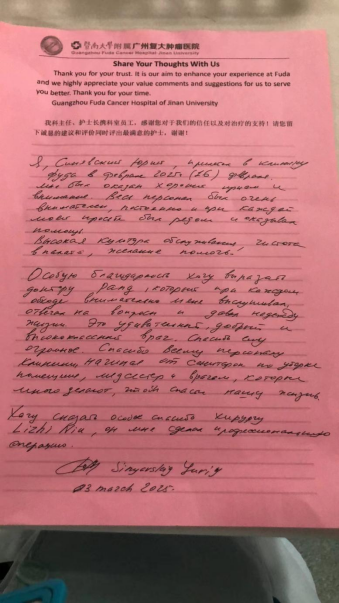 暨南大学附属广州复大肿瘤医院
Guangzhou Fuda Cancer Hospital Jinan University
Share Your Thoughts With Us
Thank you for your trust. It is our aim to enhance your experience at Fuda
and we highly appreciate your value comments and suggestions for us to serve
you better. Thank you for your time.
Guangzhou Fuda Cancer Hospital of Jinan University
我科主任、护士长携科室员工，感谢您对于我们的信任以及对治疗的支持！请您留
下诚恳的建议和评价同时评出最满意的护士，谢谢！
Я, Синявский Юрий, приехал в клинику
Фуда в феврале 2025г.
мне был оказан хороший прием и
внимание. Весь персонал был очень
внимателен, и при каждой
моей просьбе был рядом и оказывал
помощь.
Высокая культура обслуживания, чистота
в палате, желание помочь.
Особую благодарность хочу выразить
доктору, который при каждом
обходе внимательно меня выслушивал,
отвечал на вопросы и давал надежду
жизни. Это удивительный, добрый и
врач. Спасибо ему
огромное. Спасибо всему персоналу
клиники начиная от санитарки по уборке
помещение, медсестер и врачам, которые
делают, чтоб спасти нашу жизнь.
Хочу сказать особое спасибо хирургу
Lizhi Niu, он мне сделал профессионально
операцию.
Sinyavskiy Yuriy
03 march 2025.